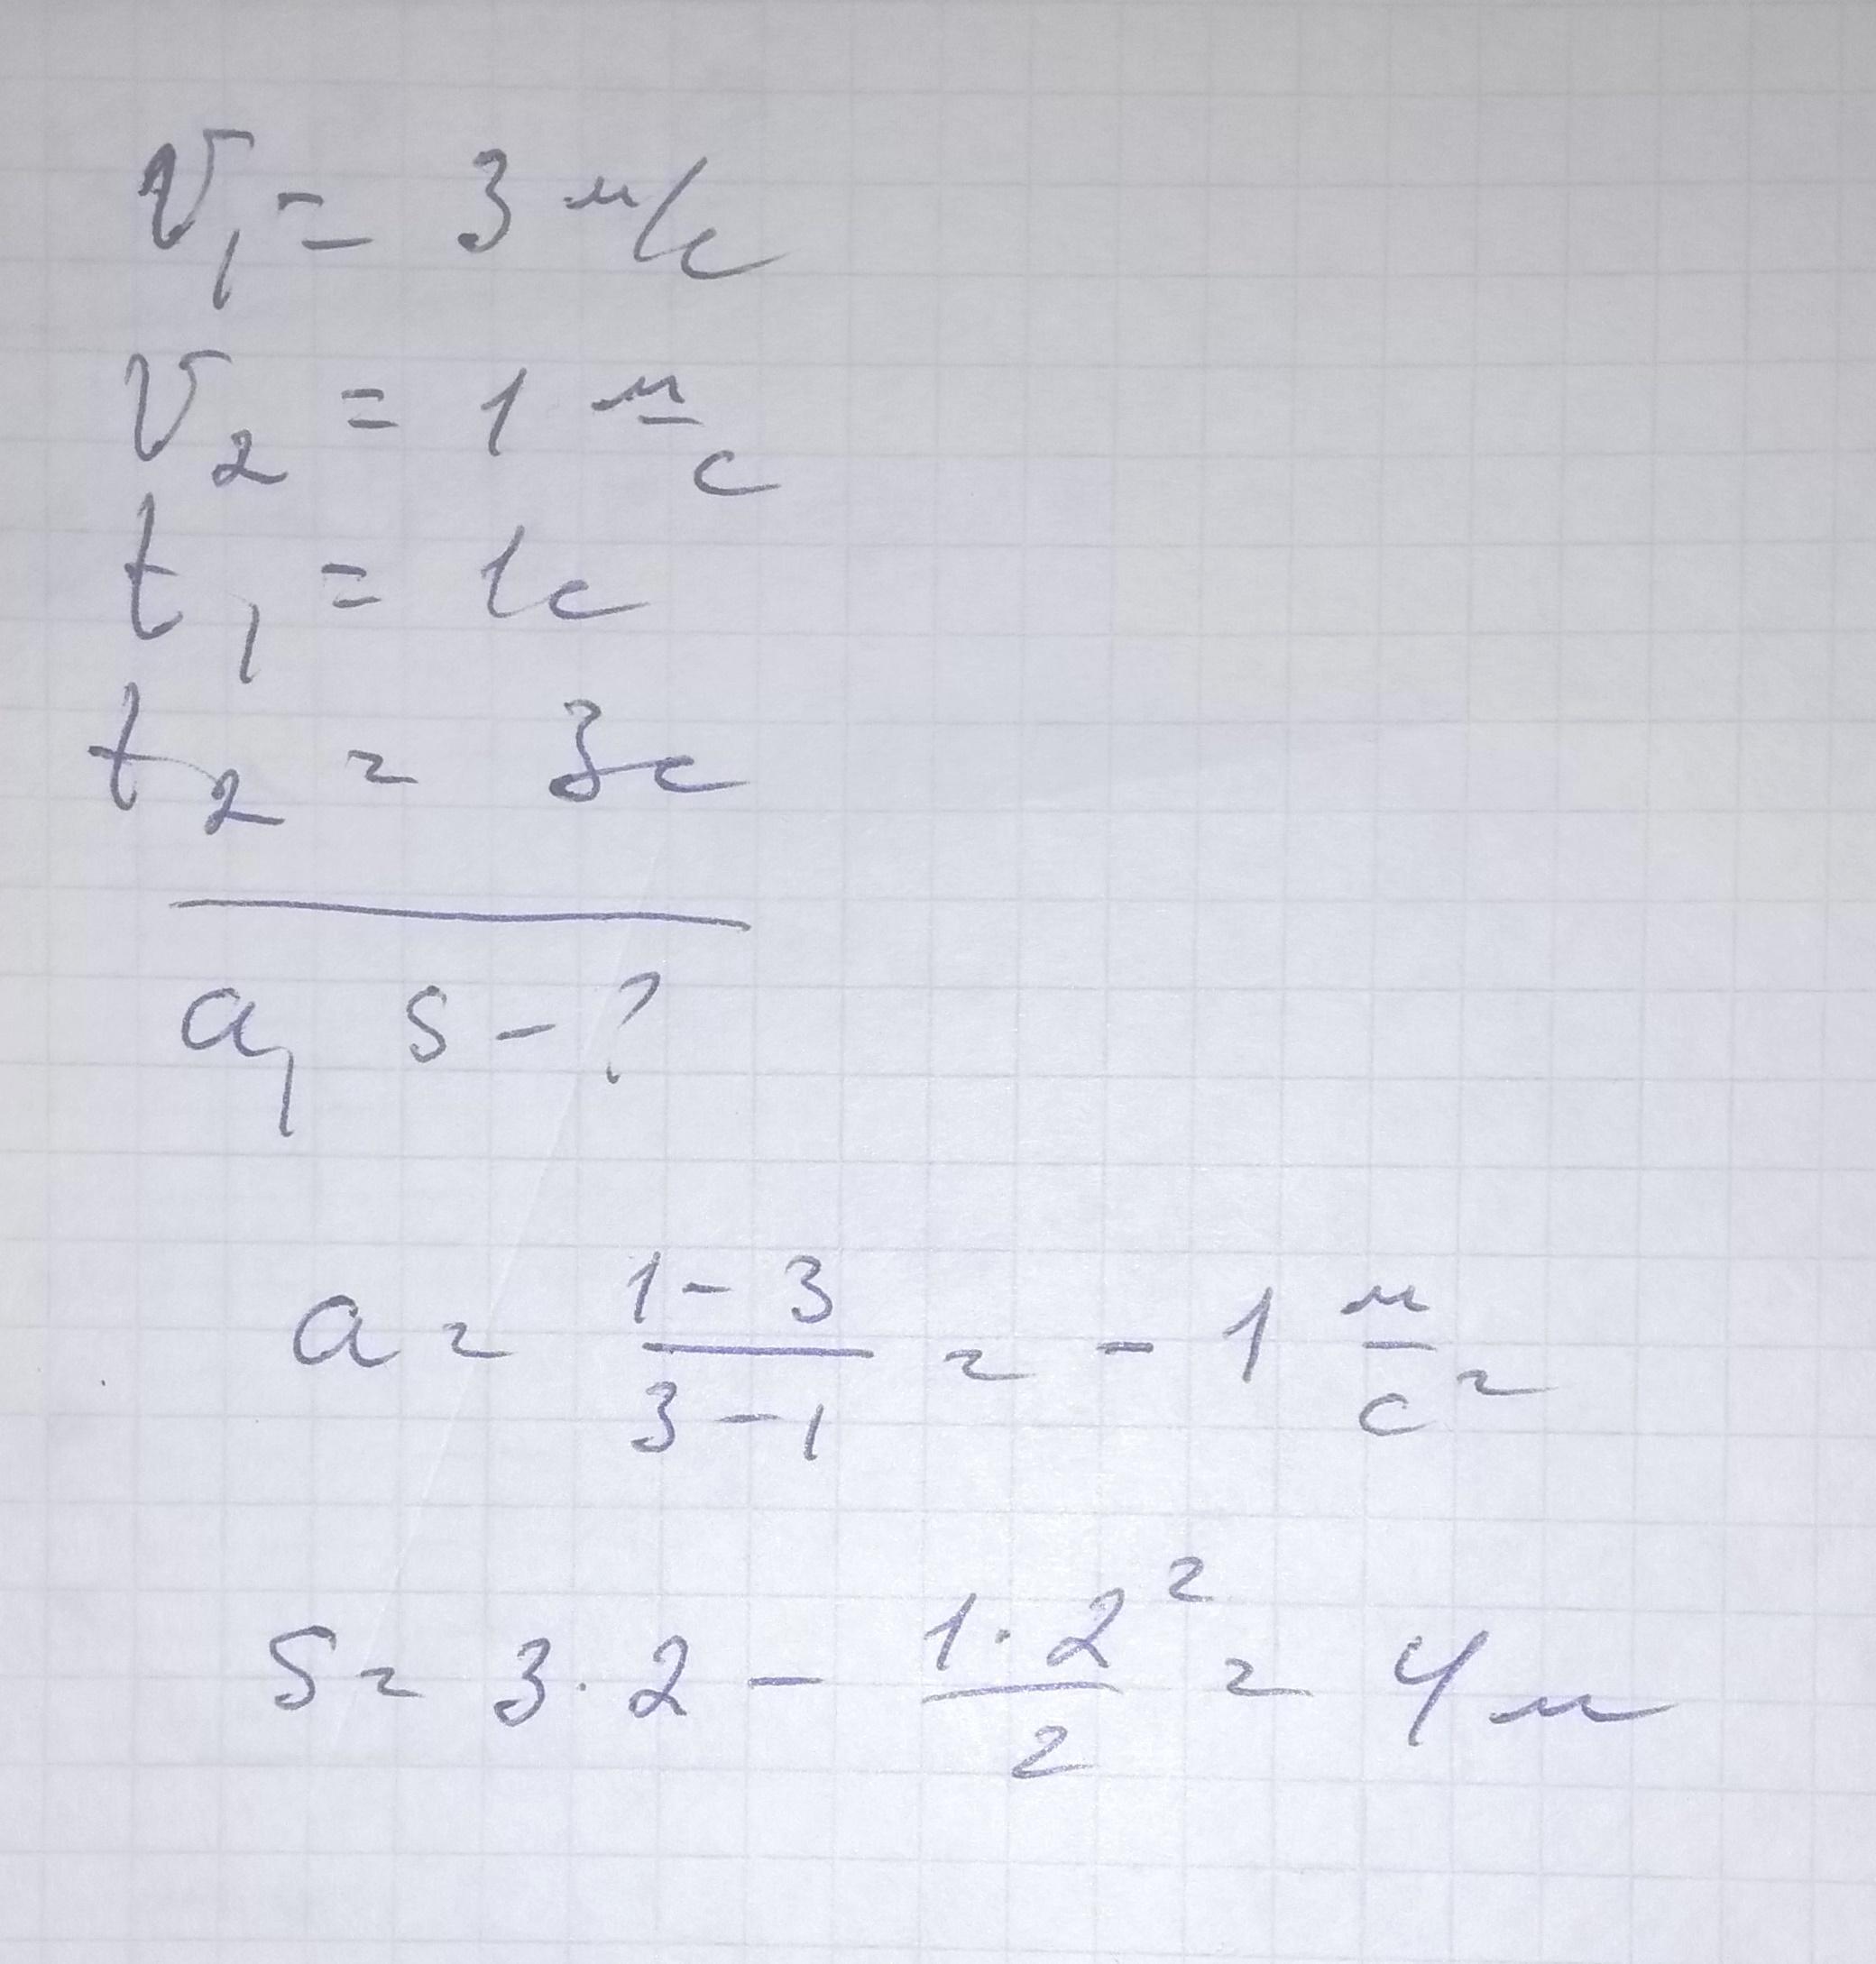 V₁ = 3 м/с
V₂ = 1 м/с
t₁ = 1с
t₂ = 3с
a, s - ?
a = (1 - 3)/(3 - 1) = - 1 м/с²
S = 3 · 2 - (1 · 2²)/2 = 4 м